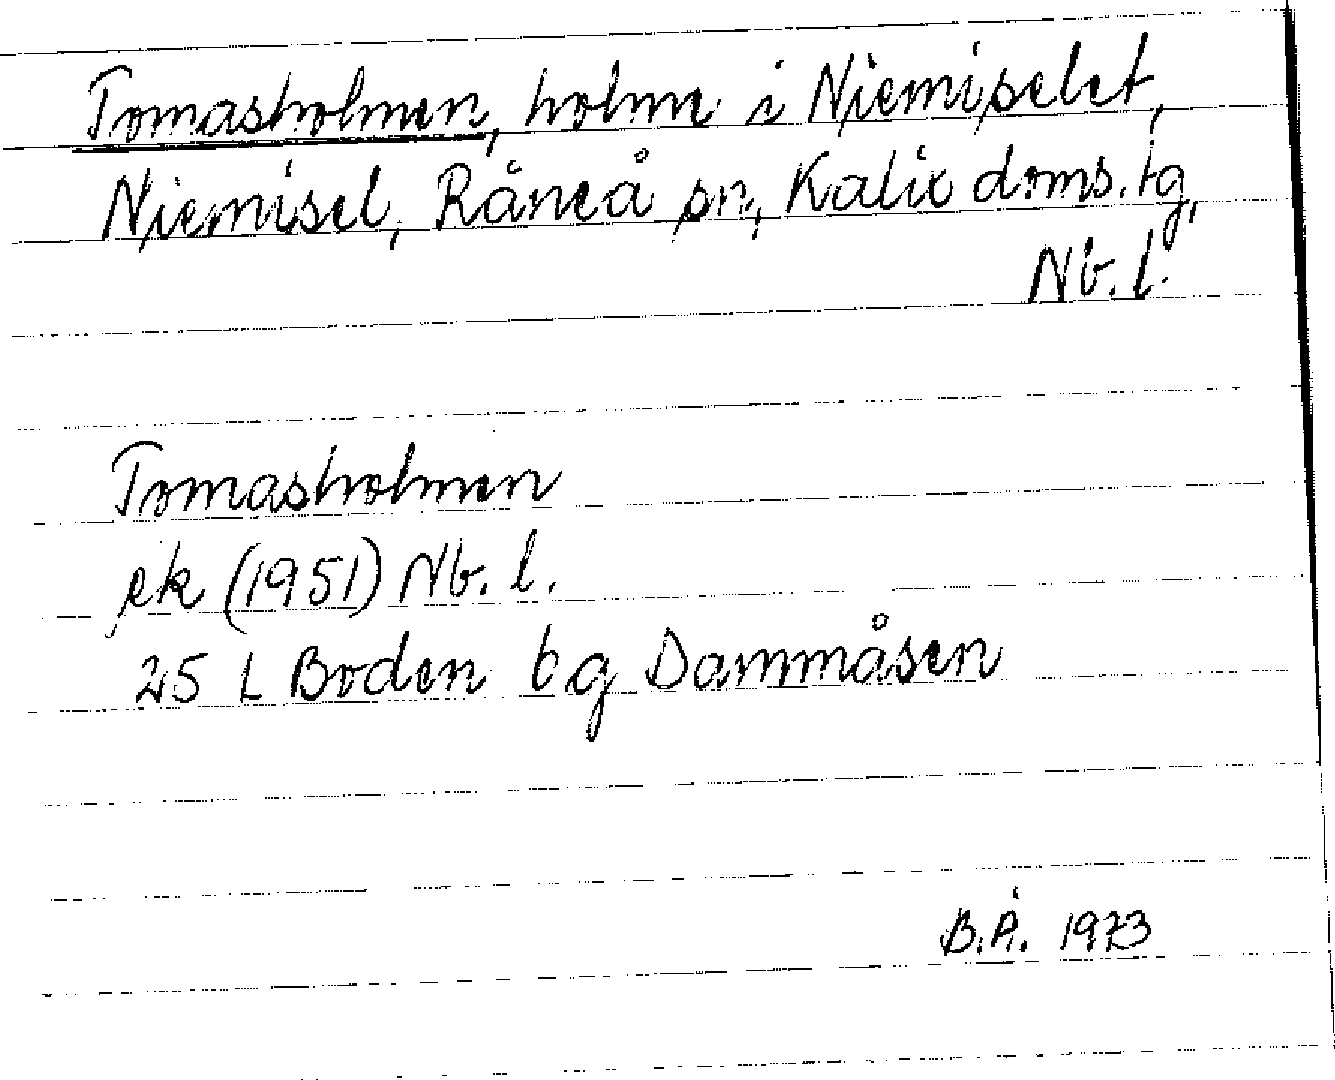 Tomasholmen, holme i Niemiselet,
Niemisel, Råneå sn, Kalix doms.tg,
Nb. l.
Tomasholmen
ek (1951) Nb. l.
25 L Boden bg Dammåsen
B.Å. 1973